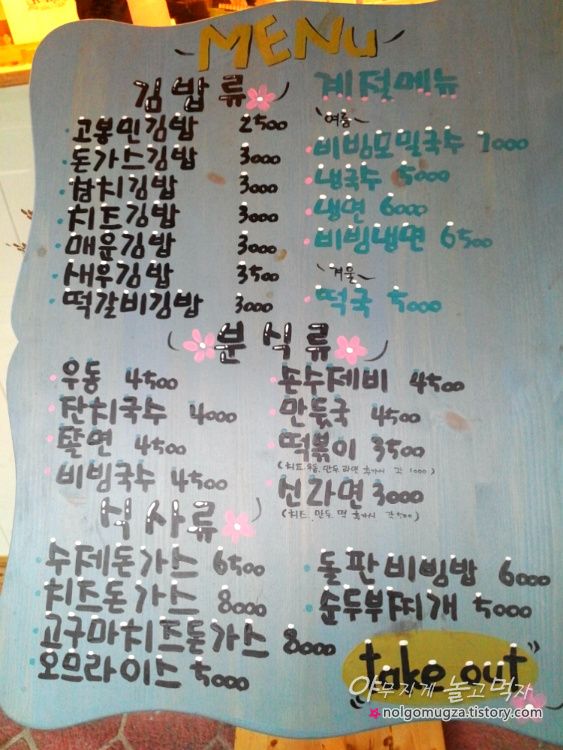 MENU
김밥류
고봉민김밥 2500
돈가스김밥 3000
참치김밥 3000
치즈김밥 3000
매운김밥 3000
새우김밥 3500
떡갈비김밥 3000
계절메뉴
여름
비빔모밀국수 7000
냉국수 5000
냉면 6000
비빔냉면 6500
겨울
떡국 5000
분식류
우동 4500
잔치국수 4000
쫄면 4500
비빔국수 4500
손수제비 4500
만둣국 4500
떡볶이 3500
(치즈, 우동, 만두, 라면 추가시 각 1000)
신라면 3000
(치즈, 만두, 떡 추가시 각 500)
식사류
수제돈가스 6500
치즈돈가스 8000
고구마치즈돈가스 8000
오므라이스 5000
돌판비빔밥 6000
순두부찌개 5000
"take out"
야무지게 놀고먹자
nolgomugza.tistory.com